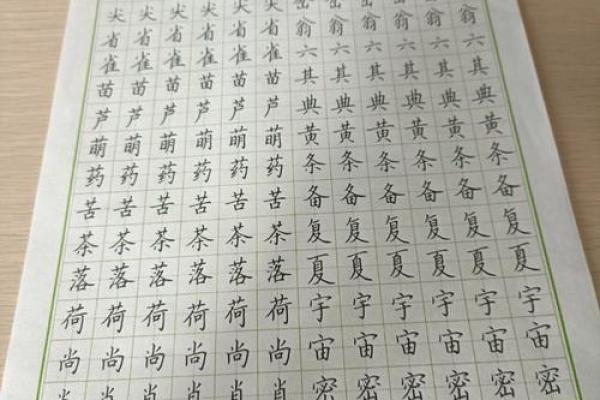 尖尖尖尖尖尖
省省省省省省翁翁翁翁翁翁
雀雀雀雀雀雀六六六六六六
苗苗苗苗苗苗其其其其其其
芦芦芦芦芦芦典典典典典典
萌萌萌萌萌萌黄黄黄黄黄黄
药药药药药药条条条条条条
苦苦苦苦苦苦备备备备备备
茶茶茶茶茶茶复复复复复复
落落落落落落夏夏夏夏夏夏
荷荷荷荷荷荷宇宇宇宇宇宇
尚尚尚尚尚尚宙宙宙宙宙宙
肖肖肖肖肖肖密密密密密密